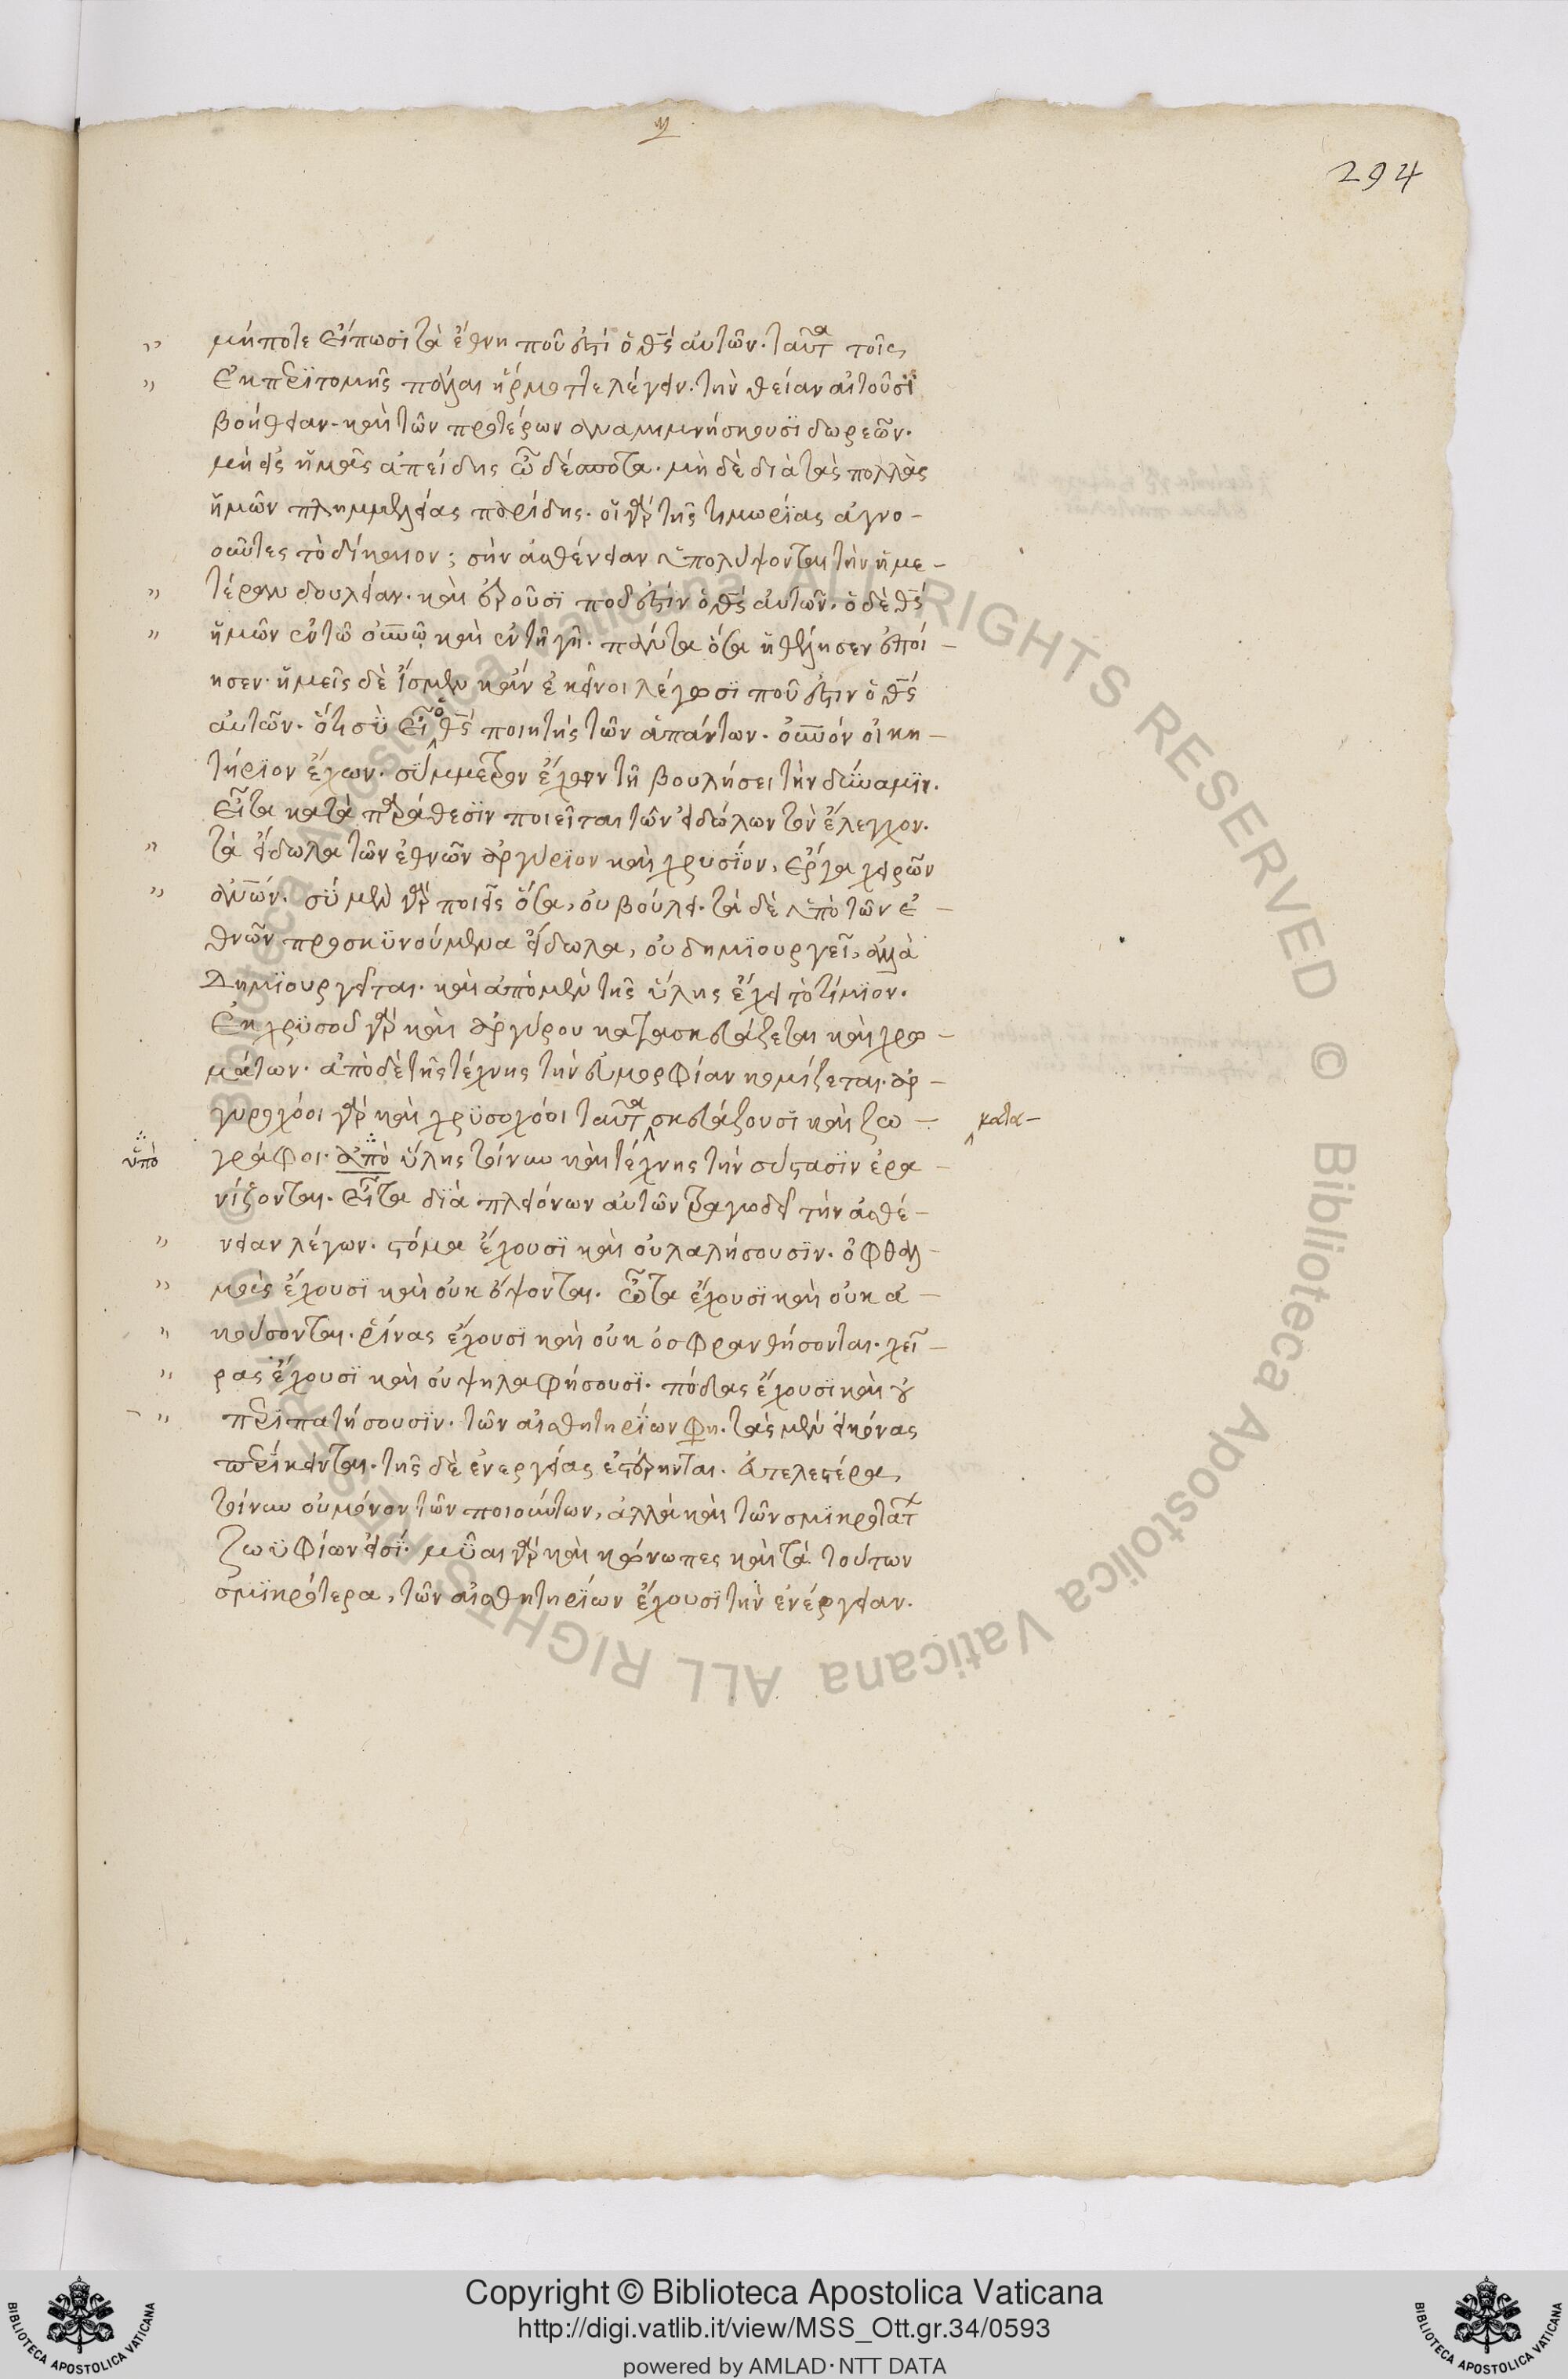 294
μήποτε εἴπωσι τὰ ἔθνη ποῦ ἐστι ὁ θς αὐτῶν. ταῦτα τοῖς
ἐκ περιτομῆς πάλαι ἥρμοττε λέγειν. τὴν θείαν αἰτοῦσι
βοήθειαν. καὶ τῶν προτέρων ἀναμιμνήσκουσι δωρεῶν.
μὴ εἰς ἡμᾶς ἀπείδης ὦ δέσποτα. μὴ δὲ διὰ τὰς πολλὰς
ἡμῶν πλημμελείας παρίδης. οἱ γὰρ τῆς τιμωρίας ἀγνο-
οῦντες τὸ δίκαιον; σὴν ἀσθένειαν ὑπολήψονται τὴν ἡμε-
τέραν δουλείαν. καὶ ἐροῦσι ποῦ ἐστὶν ὁ θς αὐτῶν. ὁ δὲ θς
ἡμῶν ἐν τῶ οὐνῶ καὶ ἐν τῆ γῆ. πάντα ὅσα ἠθέλησεν ἐποί-
ησεν. ἡμεῖς δὲ ἴσμεν κἂν ἐκεῖνοι λέγωσι ποῦ ἐστιν ὁ θς
αὐτῶν. ὅτι σὺ εἶ ὁ θς ποιητὴς τῶν ἁπάντων. οὐνὸν οἰκη-
τήριον ἔχων. σύμμετρον ἔχων τῆ βουλήσει τὴν δύναμιν.
Εἶτα κατὰ παράθεσιν ποιεῖται τῶν εἰδώλων τὸν ἔλεγχον.
τὰ εἴδωλα τῶν ἐθνῶν ἀργύριον καὶ χρυσίον, ἔργα χειρῶν
ἀνῶν. σὺ μὲν γὰρ ποιεῖς ὅσα, οὐ βούλει. τὰ δὲ ὑπὸ τῶν ἐ-
θνῶν προσκυνούμενα εἴδωλα, οὐ δημιουργεῖ, ἀλλὰ
Δημιουργεῖται. καὶ ἀπὸ μὲν τῆς ὕλης ἔχει τὸ τίμιον.
Ἐκ χρυσοῦ γὰρ καὶ ἀργύρου κατασκευάζεται καὶ χρω-
μάτων. ἀπὸ δὲ τῆς τέχνης τὴν εὐμορφίαν κομίζεται. ἀρ-
γυροχόοι γὰρ καὶ χρυσοχόοι ταῦτα σκευάζουσι καὶ ζω-
κατα-
ὑπὸ
γράφοι. ἀπὸ ὕλης τοίνυν καὶ τέχνης τὴν σύστασιν ἐρα-
νίζονται. Εἶτα διὰ πλειόνων αὐτῶν τραγωδεῖ τὴν ἀσθέ-
νειαν λέγων. στόμα ἔχουσι καὶ οὐ λαλήσουσιν. ὀφθαλ-
μοὺς ἔχουσι καὶ οὐκ ὄψονται. ὦτα ἔχουσι καὶ οὐκ ἀ-
κούσονται. ῥίνας ἔχουσι καὶ οὐκ ὀσφρανθήσονται. χεῖ-
ρας ἔχουσι καὶ οὐ ψηλαφήσουσι. πόδας ἔχουσι καὶ οὐ
περιπατήσουσιν. τῶν αἰσθητηρίων φη. τὰς μὲν εἰκόνας
περίκεινται. τῆς δὲ ἐνεργείας ἐστέρηνται. ἀτελέστερα,
τοίνυν οὐ μόνον τῶν ποιούντων, ἀλλὰ καὶ τῶν σμικροτάτ
ζωυφίων εἰσί. μῦαι γὰρ καὶ κώνωπες καὶ τὰ τούτων
σμικρότερα, τῶν αἰσθητηρίων ἔχουσι τὴν ἐνέργειαν.
Copyright © Biblioteca Apostolica Vaticana
http://digi.vatlib.it/view/MSS_Ott.gr.34/0593
powered by AMLAD·NTT DATA
BIBLIOTECA APOSTOLICA VATICANA
BIBLIOTECA APOSTOLICA VATICANA
© Biblioteca Apostolica Vaticana ALL RIGHTS RESERVED
© Biblioteca Apostolica Vaticana ALL RIGHTS RESERVED